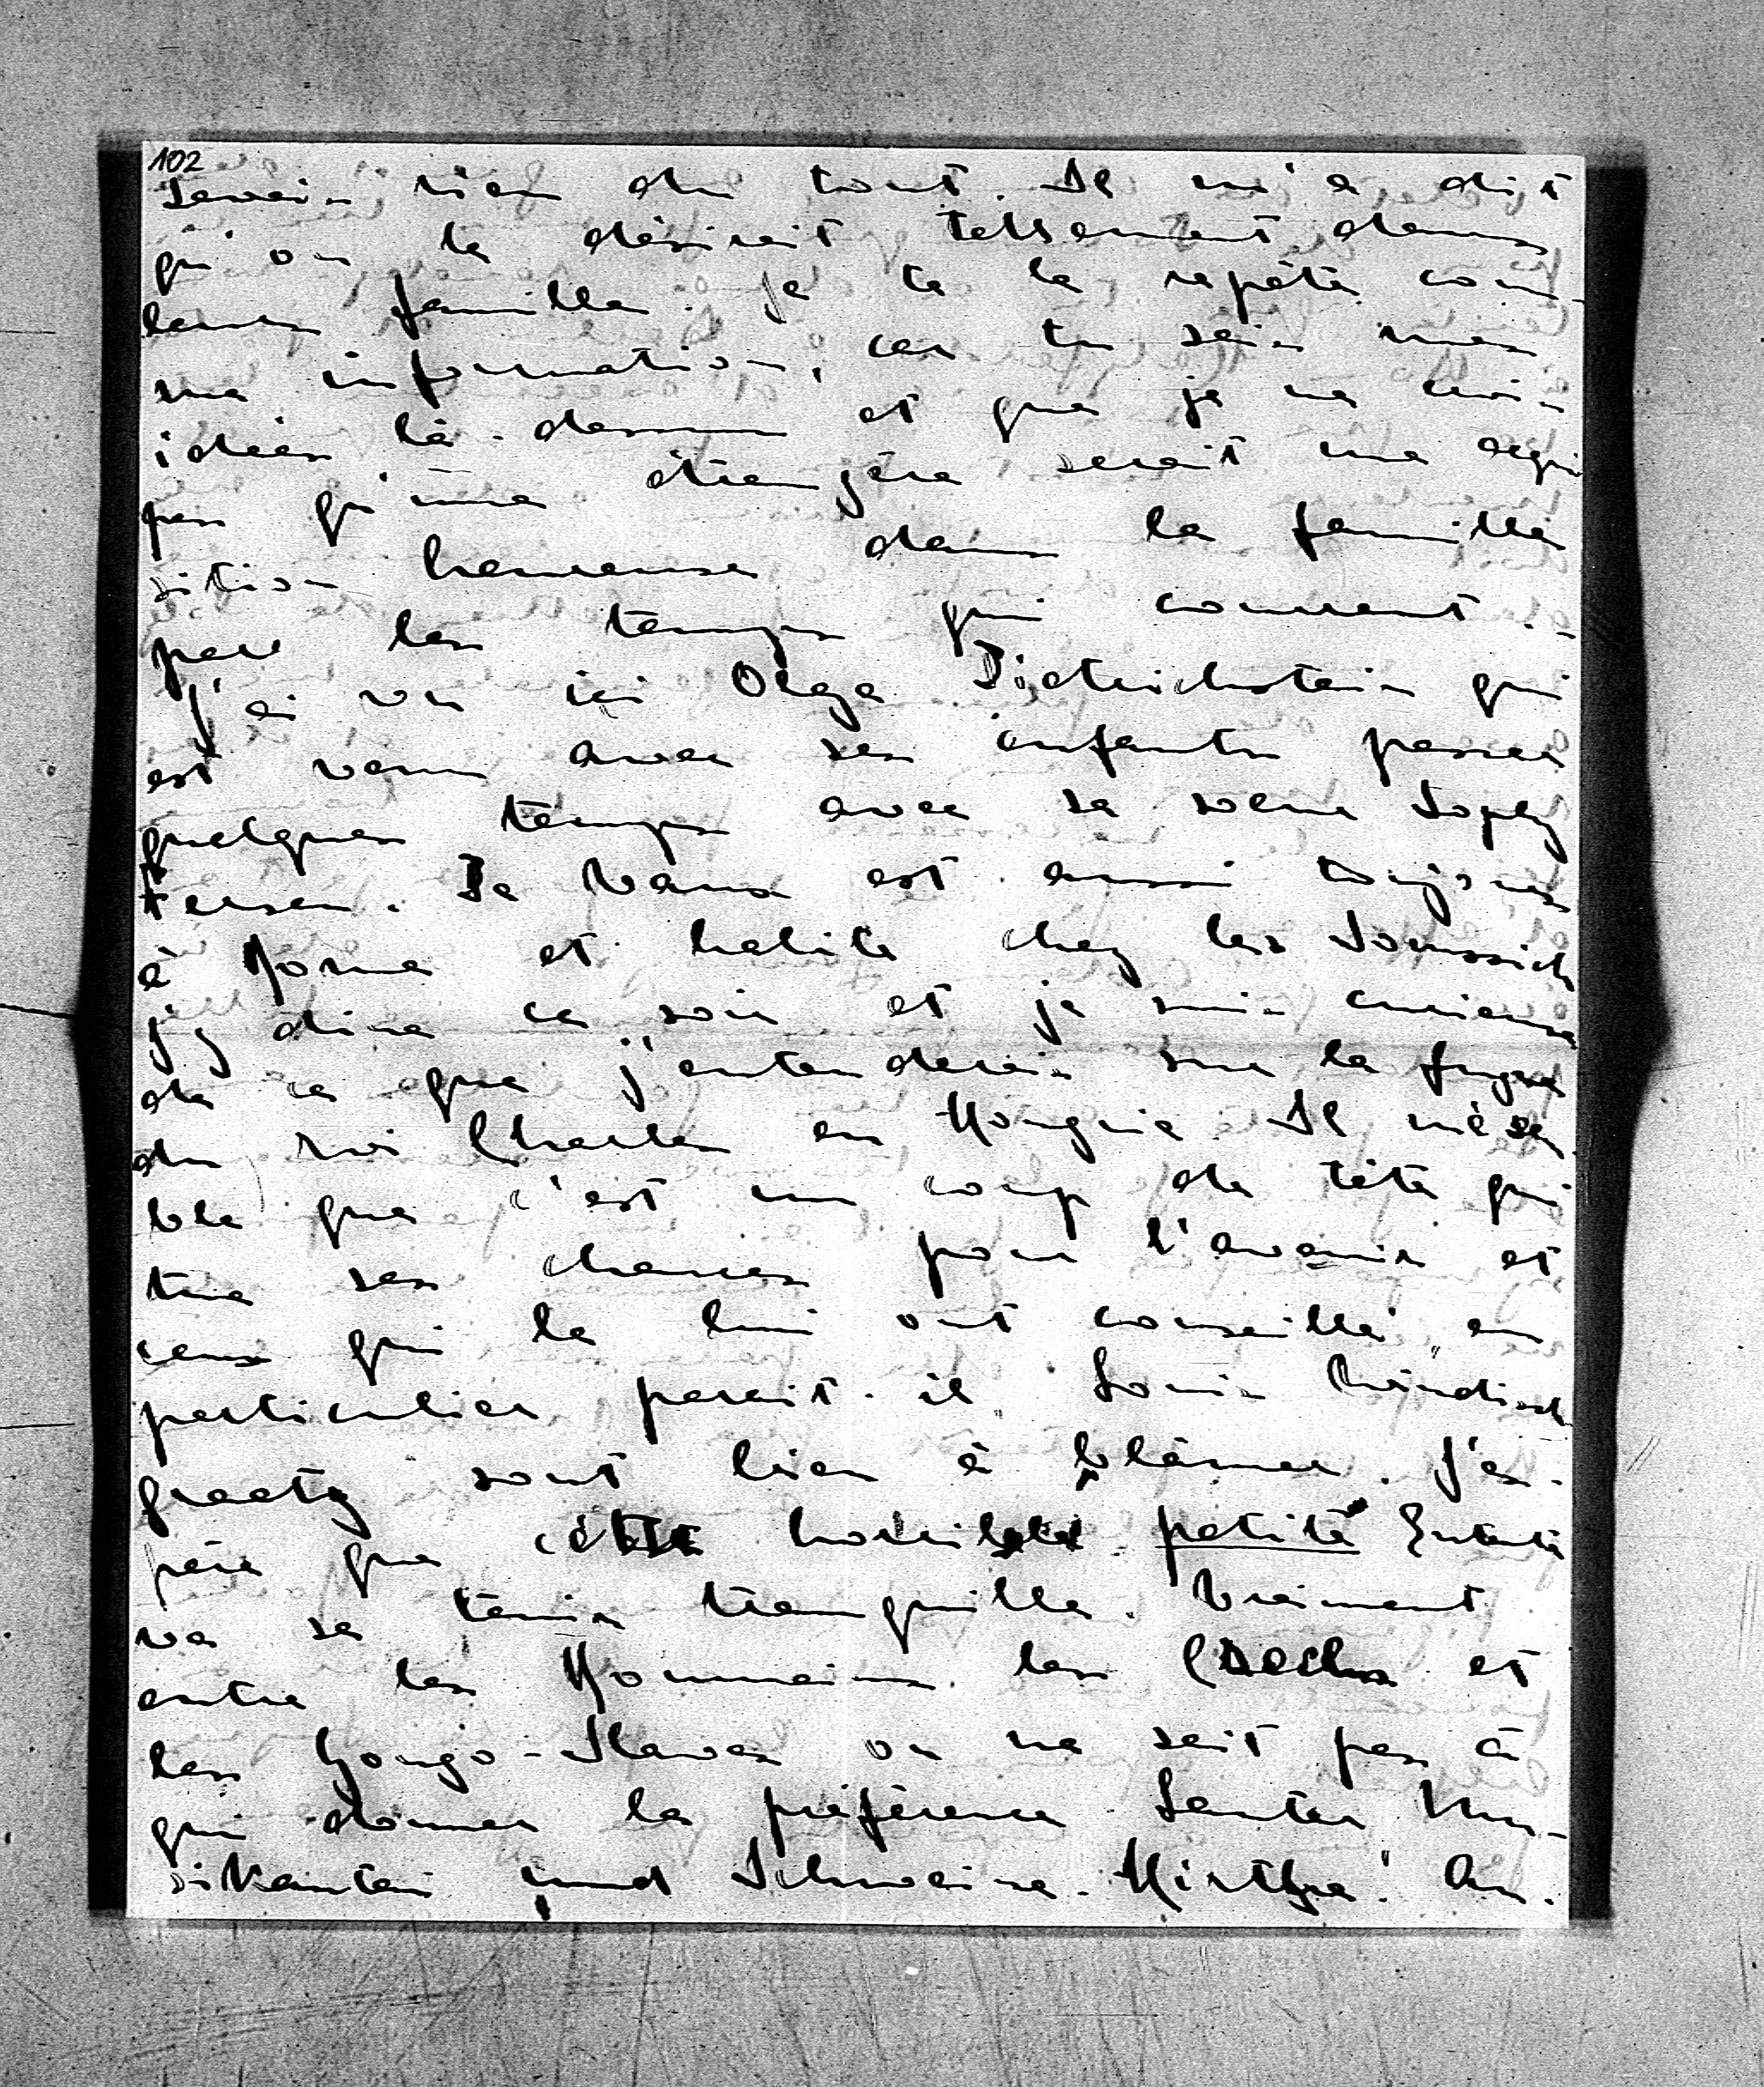 102
savais rien du tout. Il m'a dit
qu'on te désirait tellement dans
leur famille. Je te le répète com-
me information, car tu sais mes
idées là-dessus et que je ne crois
pas qu'une étrangère serait une acqui
sition heureuse dans la famille
par les temps qui courent.-
J'ai vu ici Olga Dietrichstein qui
est venu avec ses enfants passer
quelques temps avec sa soeur Sophy
Fersen. De Vaux est aussi toujours
à Rome et habite chez les
j'y dine ce soir et je suis curieuse
de ce que j'entenderais sur la fugue
du roi Charles en Hongrie. Il me sem
ble que c'est un coup de tête qui
tue ses chances pour l'avenir et
ceux qui le lui ont conseillé en
particulier parait-il Louis Windisch
graetz sont bien à blâmer. J'es-
père que cette horrible petite Entente
va se tenir tranquille. Vraiment
entre les Roumains les Csechs et
les Yougo-Slaves on ne sait pas à
qui donner la préférence. Lauter Mu-
sikanten und Schweine-Hirthe! Au-